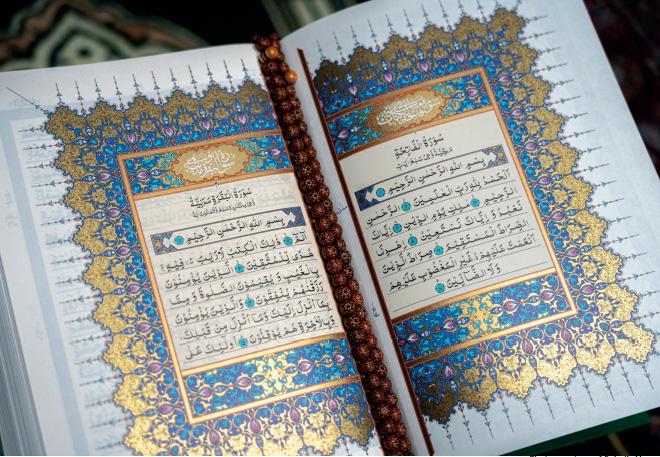 سُورَةُ الْفَاتِحَةِ
بِسْمِ اللهِ الرَّحْمٰنِ الرَّحِيمِ
اَلْحَمْدُ لِلّٰهِ رَبِّ الْعٰلَمِينَ الرَّحْمٰنِ
الرَّحِيمِ مٰلِكِ يَوْمِ الدِّينِ اِيَّاكَ
نَعْبُدُ وَاِيَّاكَ نَسْتَعِينُ اِهْدِنَا
الصِّرَاطَ الْمُسْتَقِيمَ صِرَاطَ الَّذِينَ
اَنْعَمْتَ عَلَيْهِمْ غَيْرِ الْمَغْضُوبِ عَلَيْهِمْ
وَلَا الضَّالِّينَ
سُورَةُ الْبَقَرَةِ مَدَنِيَّةٌ
بِسْمِ اللهِ الرَّحْمٰنِ الرَّحِيمِ
الٓمٓ ذٰلِكَ الْكِتٰبُ لَا رَيْبَ فِيهِ
هُدًى لِلْمُتَّقِينَ الَّذِينَ يُؤْمِنُونَ
بِالْغَيْبِ وَيُقِيمُونَ الصَّلٰوةَ وَمِمَّا
رَزَقْنٰهُمْ يُنْفِقُونَ وَالَّذِينَ يُؤْمِنُونَ
بِمَا اُنْزِلَ اِلَيْكَ وَمَا اُنْزِلَ مِنْ قَبْلِكَ
وَبِالْاٰخِرَةِ هُمْ يُوقِنُونَ اُولٰئِكَ عَلٰى